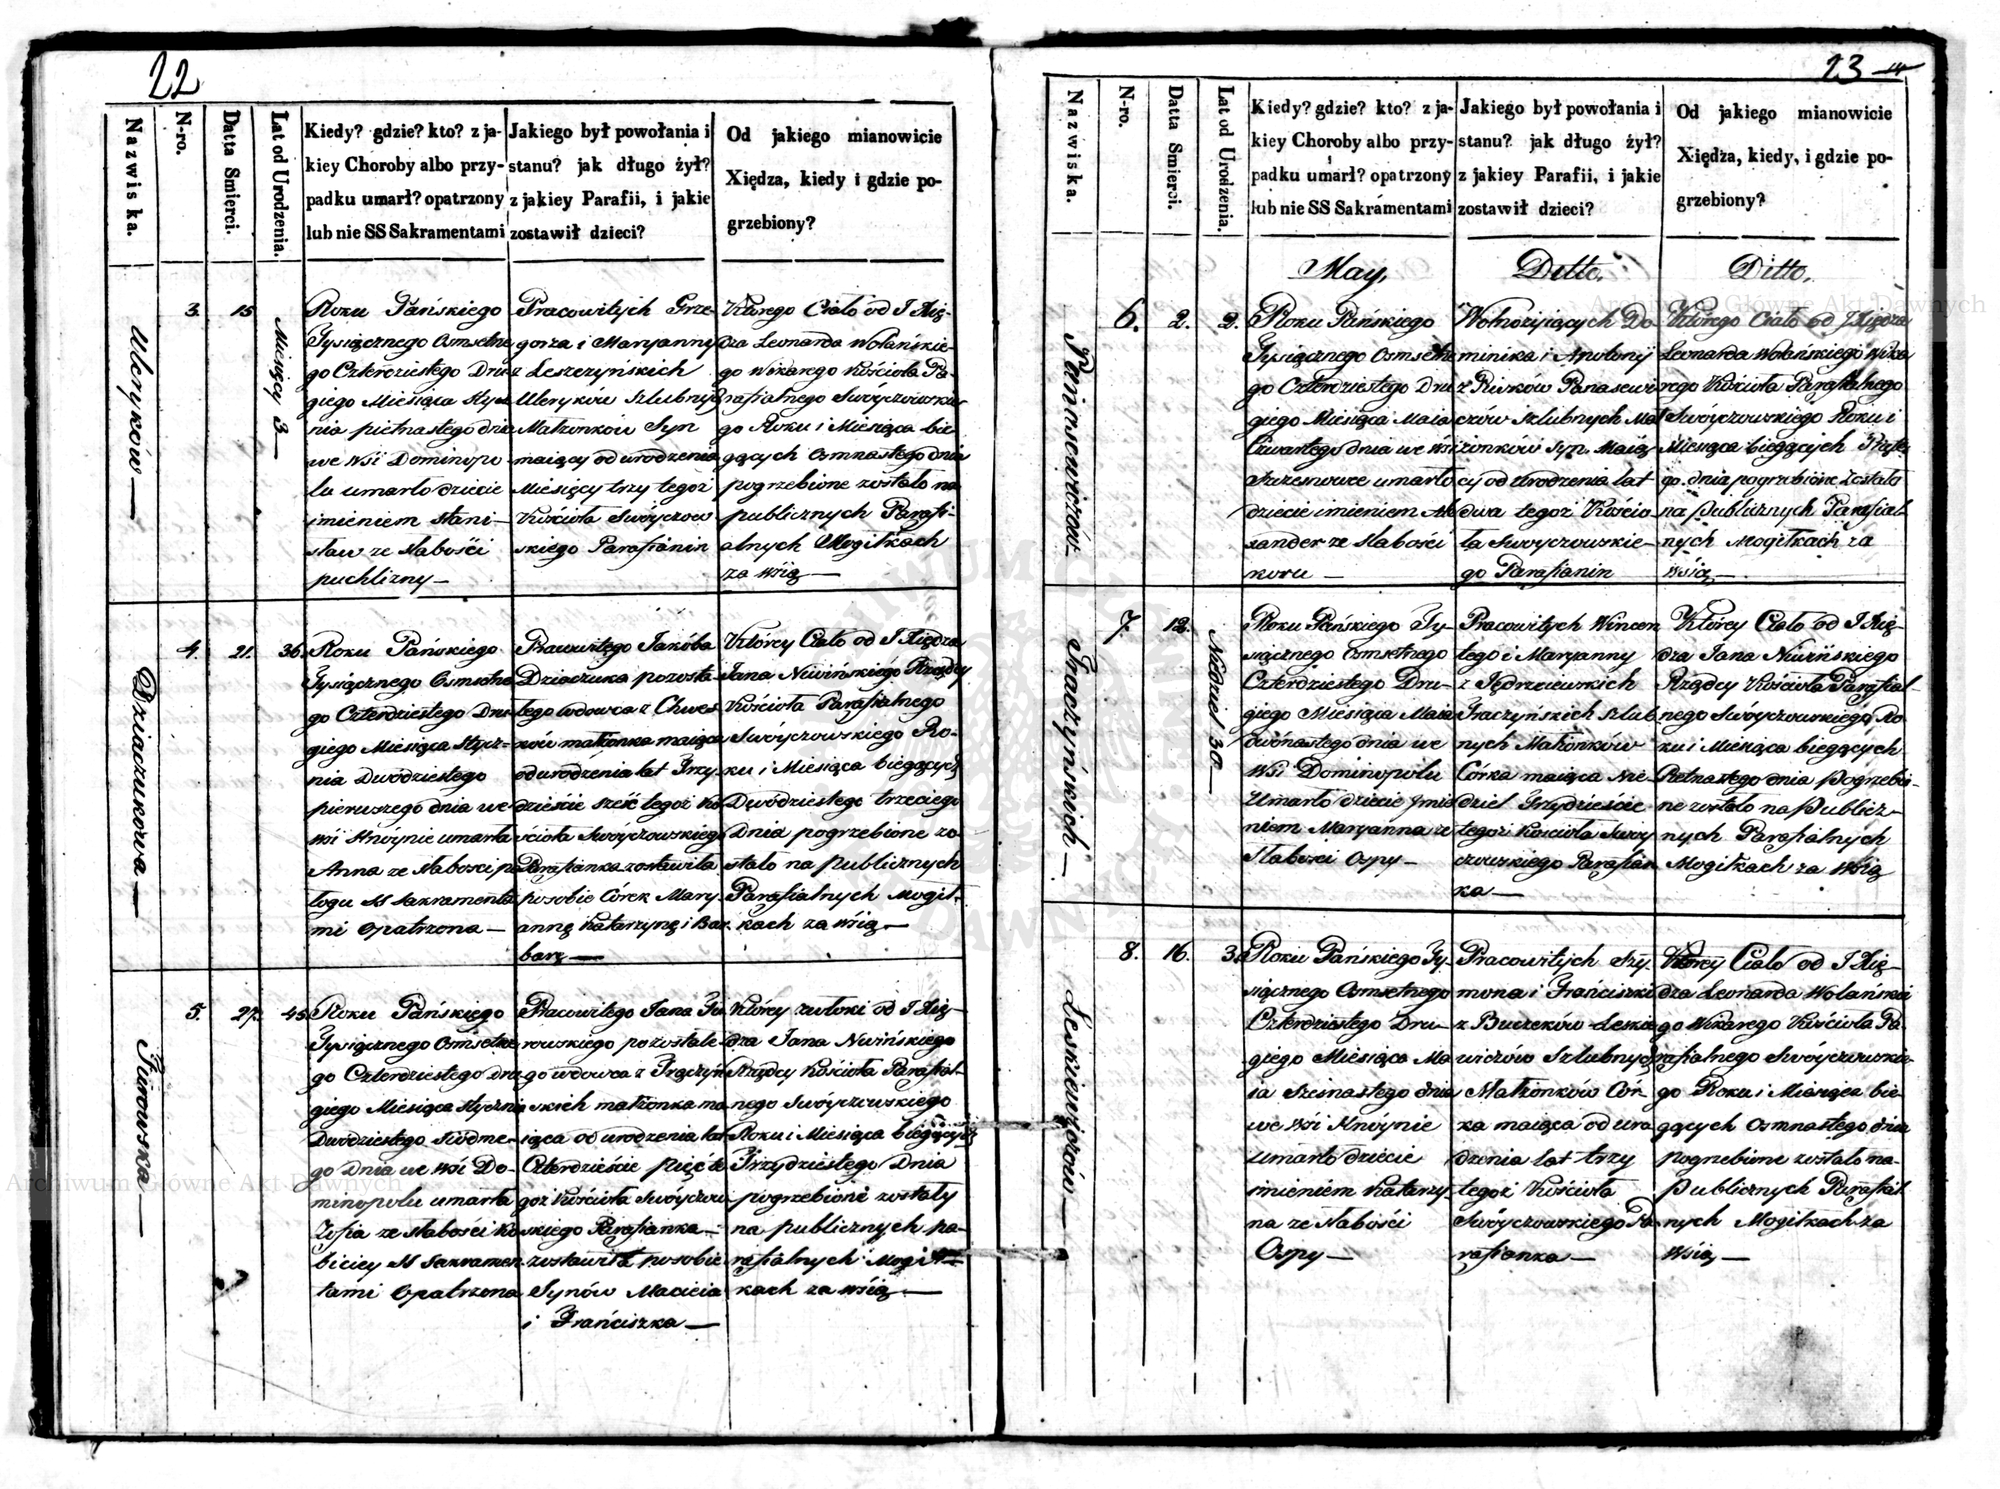 22
Nazwiska.
N-ro.
Datta Smierci.
Lat od Urodzenia.
Kiedy? gdzie? kto? z ja-
kiey Choroby albo przy-
padku umarł? opatrzony
lub nie SS Sakramentami
Jakiego był powołania i
stanu? jak długo żył?
z jakiey Parafii, i jakie
zostawił dzieci?
Od jakiego mianowicie
Xiędza, kiedy i gdzie po-
grzebiony?
Uleryków —
3.
15
Miesięcy 3 —
Roku Pańskiego
Tysiącznego Osmsetne
go Czterdziestego Dru
giego Miesiąca Stycz
nia piętnastego dnia
we wsi Dominopo
lu umarło dziecie
imieniem Stani-
sław ze słabości
puchlizny —
Pracowitych Grze
gorza i Maryanny
z Leszczyńskich
Uleryków Szlubnych
Małżonków Syn
maiący od urodzenia
Miesięcy trzy tegoż
Kościoła Swóyczow
skiego Parafianin
Którego Ciało od J Xię-
dza Leonarda Wolańskie-
go Wikarego Kościoła Pa-
rafialnego Swóyczowskie
go Roku i Miesiąca bie-
gących osmnastego dnia
pogrzebione zostało na
publicznych Parafi-
alnych Mogiłkach
za wsią —
Dziaczukowa —
4.
21.
36.
Roku Pańskiego
Tysiącznego Osmsetne
go Czterdziestego Dru
giego Miesiąca Stycz-
nia Dwódziestego
pierwszego dnia we
wsi Hnóynie umarła
Anna ze słabosci po
łogu SS Sakramenta
mi opatrzona —
Pracowitego Jakóba
Dziaczuka pozosta-
łego wdowca z Chwes
ków małżonka maiąca
od urodzenia lat Trzy
dzieście sześć tegoż Ko
ścioła Swóyczowskiego
Parafianka zostawiła
po sobie Córek Mary-
annę Katarzynę i Bar
barę —
Którey Ciało od J Xiędza
Jana Niwińskiego Rządcy
Kościoła Parafialnego
Swóyczowskiego Ro-
ku i Miesiąca biegących
Dwódziestego trzeciego
Dnia pogrzebione zo-
stało na publicznych
Parafialnych Mogił-
kach za wsią —
Turowska —
5.
27.
45
Roku Pańskiego
Tysiącznego Osmsetne
go Czterdziestego dru
giego Miesiąca stycznia
Dwódziestego siódme-
go Dnia we wsi Do-
minopolu umarła
Zofia ze słabości ko
biecey SS Sakramen
tami opatrzona
Pracowitego Jana Tu
rowskiego pozostałe
go wdowca z Traczyń
skich małżonka ma
iąca od urodzenia lat
Czterdzieście pięć te
goż Kościoła Swóyczow
skiego Parafianka —
zostawiła po sobie
Synów Macieia
i Franciszka —
Którey zwłoki od J Xię-
dza Jana Niwińskiego
Rządcy Kościoła Parafial-
nego Swóyczowskiego
Roku i Miesiąca biegących
Trzydziestego Dnia
pogrzebione zostały
na publicznych pa-
rafialnych Mogił-
kach za wsią —
23
Nazwiska.
N-ro.
Datta Smierci.
Lat od Urodzenia.
Kiedy? gdzie? kto? z ja-
kiey Choroby albo przy-
padku umarł? opatrzony
lub nie SS Sakramentami
Jakiego był powołania i
stanu? jak długo żył?
z jakiey Parafii, i jakie
zostawił dzieci?
Od jakiego mianowicie
Xiędza, kiedy, i gdzie po-
grzebiony?
May,
Ditto.
Ditto.
Panasewiczów
6.
2.
2.
Roku Pańskiego
Tysiącznego Osmsetne
go Czterdziestego Dru
giego Miesiąca Maia
Czwartego dnia we wsi
umarło
dziecie imieniem Ale
xander ze słabości
koru —
Wolnożyiących Do-
minika i Apolonij
z Panasewi
czów Szlubnych Mał
żonków Syn. Maią
cy od urodzenia lat
dwa tegoż Kościo
ła Swóyczowskie-
go Parafianin
Którego Ciało od J Xiędza
Leonarda Wolańskiego Wika
rego Kościoła Parafialnego
Swóyczowskiego Roku i
Miesiąca biegących
go dnia pogrzebione zostało
na Publicznych Parafial
nych Mogiłkach za
Wsią —
Traczyńskich —
7.
12.
Niedziel 30 —
Roku Pańskiego Ty-
siącznego Osmsetnego
Czterdziestego Dru-
giego Miesiąca Maia
dwónastego dnia we
Wsi Dominopolu
Umarło dziecie Jmie
niem Maryanna ze
Słabości Ospy —
Pracowitych Wincen
tego i Maryanny
z Jędrzeiewskich
Traczyńskich Szlub
nych Małżonków
Córka maiąca Nie-
dziel Trzydzieście
tegoż Kościoła Swóy
czowskiego Parafian
ka —
Którey Ciało od J Xię-
dza Jana Niwińskiego
Rządcy Kościoła Parafial-
nego Swóyczowskiego Ro
ku i Miesiąca biegących
Piętnastego dnia Pogrzebio
ne zostało na Publicz-
nych Parafialnych
Mogiłkach za Wsią
Leskiewiczów —
8.
16.
3.
Roku Pańskiego Ty-
siącznego Osmsetnego
Czterdziestego Dru-
giego Miesiąca Ma
ia Szesnastego dnia
we Wsi Hnóynie
umarło dziecie
imieniem Katarzy
na ze słabości
Ospy —
Pracowitych Szy-
mona i Franciszki
z Buczków Leskie
wiczów Szlubnych
Małżonków Cór-
ka maiąca od uro
dzenia lat trzy
tegoż Kościoła
Swóyczowskiego Pa
rafianka —
Którey Ciało od J Xię-
dza Leonarda Wolańskie
go Wikarego Kościoła Pa
rafialnego Swóyczowskie-
go Roku i Miesiąca bie-
gących Osmnastego dnia
pogrzebione zostało na
Publicznych Parafial
nych Mogiłkach za
Wsią —
Archiwum Główne Akt Dawnych
Archiwum Główne Akt Dawnych